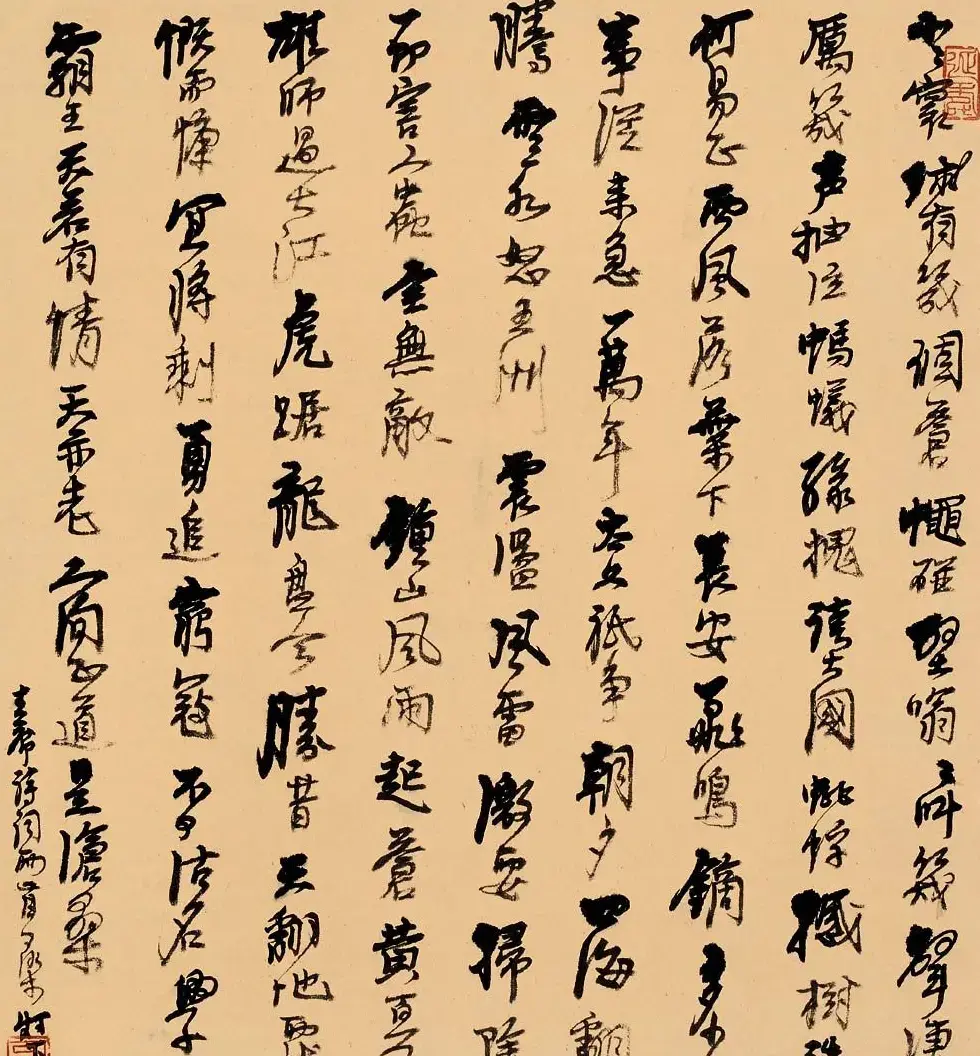 小小寰球有幾個蒼蠅碰壁嗡嗡叫幾聲凄
厲幾声抽泣螞蟻緣槐誇大國蚍蜉撼樹談
何易正西風落葉下長安飛鳴鏑多少
事從来急一萬年太久祇争朝夕四海翻
騰雲水怒五洲震盪風雷激要掃除
一切害人蟲全無敵鍾山風雨起蒼黃百万
雄師過大江虎踞龍盤今勝昔天翻地覆
慨而慷宜將剩勇追窮寇不可沽名學
霸王天若有情天亦老人間正道是滄桑
主席詩詞兩首